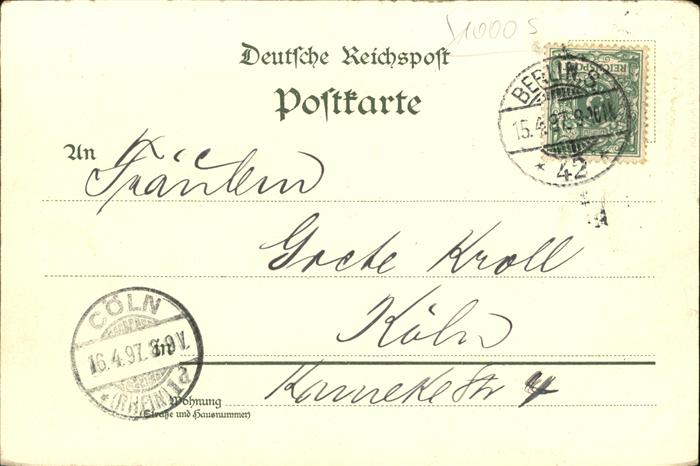 1000 s
Deutsche Reichspost
Postkarte
REICHSPOST
BERLIN.S.
15.4.97.8-
* 42
An
Fräulein
Kroll
Köln
CÖLN
16.4.97. 8-9 V.
*(RHEIN)
In
Wohnung
(Straße und Hausnummer)